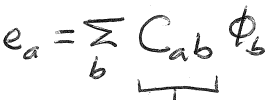 e_a = Σ_b C_ab Φ_b